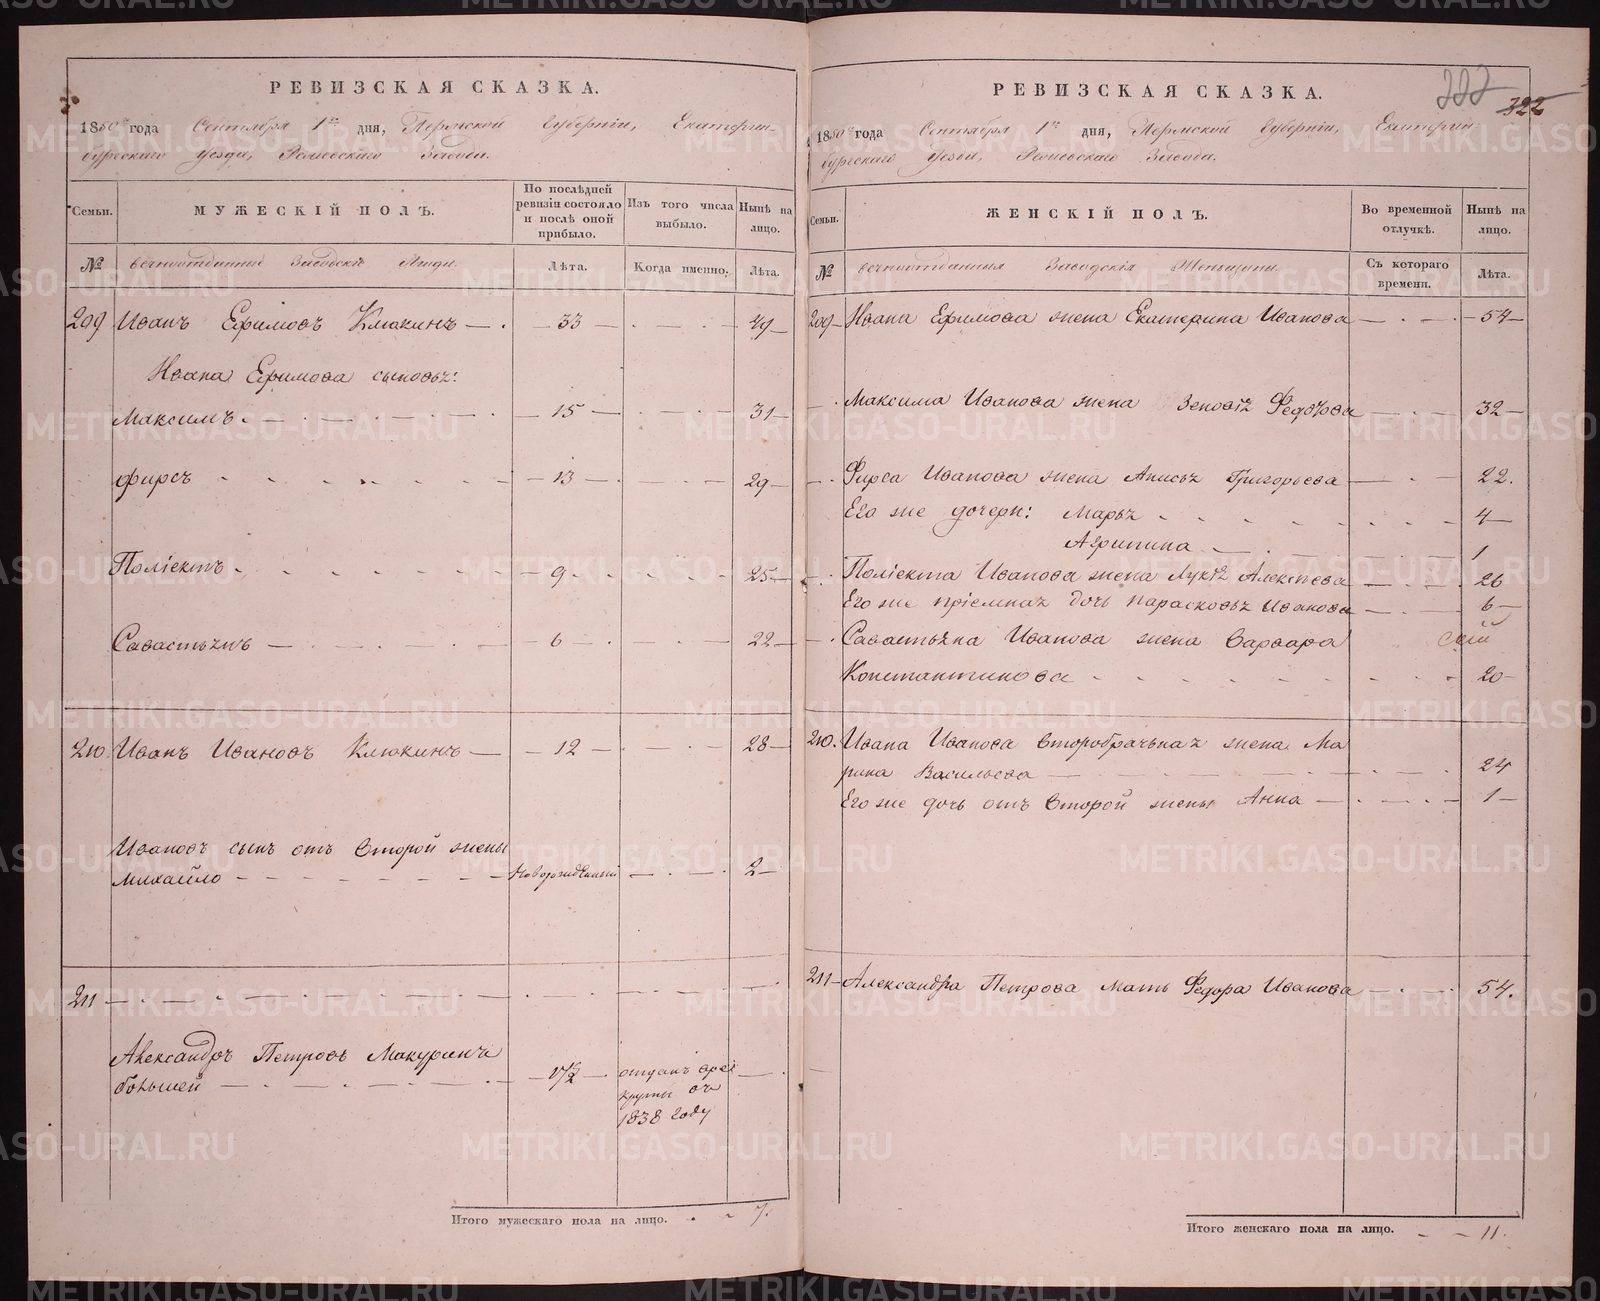 РЕВИЗСКАЯ СКАЗКА.
1850 года Сентября 1го дня, Пермской Губерніи, Екатерин-
бургскаго уезда, Завода.
Семьи.
МУЖЕСКІЙ ПОЛЪ.
По послѣдней ревизіи состояло и послѣ оной прибыло.
Изъ того числа выбыло.
Нынѣ на лицо.
№
вечноотданные Заводскіе Люди.
Лѣта.
Когда именно.
Лѣта.
209 Иванъ Ефимовъ Клюкинъ 33 49
Ивана Ефимова сыновья:
Максимъ 15 31
Фирсъ 13 29
Поліектъ 9 25
Савастьянъ 6 22
210 Иванъ Ивановъ Клюкинъ 12 28
Ивановъ сынъ отъ второй жены
Михайло новорожденный 2
211
Александръ Петровъ Макуринъ
большей 17½ отданъ врек
круты въ
1838 году
Итого мужескаго пола на лицо. 7.
РЕВИЗСКАЯ СКАЗКА.
322
1850 года Сентября 1го дня, Пермской Губерніи, Екатерин
бургскаго уезда, Завода.
Семьи.
ЖЕНСКІЙ ПОЛЪ.
Во временной отлучкѣ.
Нынѣ на лицо.
№
вечноотданныя Заводскія Женщины.
Съ котораго времени.
Лѣта.
209 Ивана Ефимова жена Екатерина Иванова 54
Максима Иванова жена Зеновія Федотова 32
Фирса Иванова жена Анисья Григорьева 22.
Его же дочери: Марья 4
Агрипина 1
Поліекта Иванова жена Лукія Алексѣева 26
Его же пріемная дочь Парасковья Иванова 6
Савастьяна Иванова жена Варвара
Константинова 20
210. Ивана Иванова второбрачьная жена Ма
рина Васильева 24
Его же дочь отъ второй жены Анна 1
211 Александра Петрова мать Федора Иванова 54.
Итого женскаго пола на лицо. 11.
METRIKI.GASO-URAL.RU